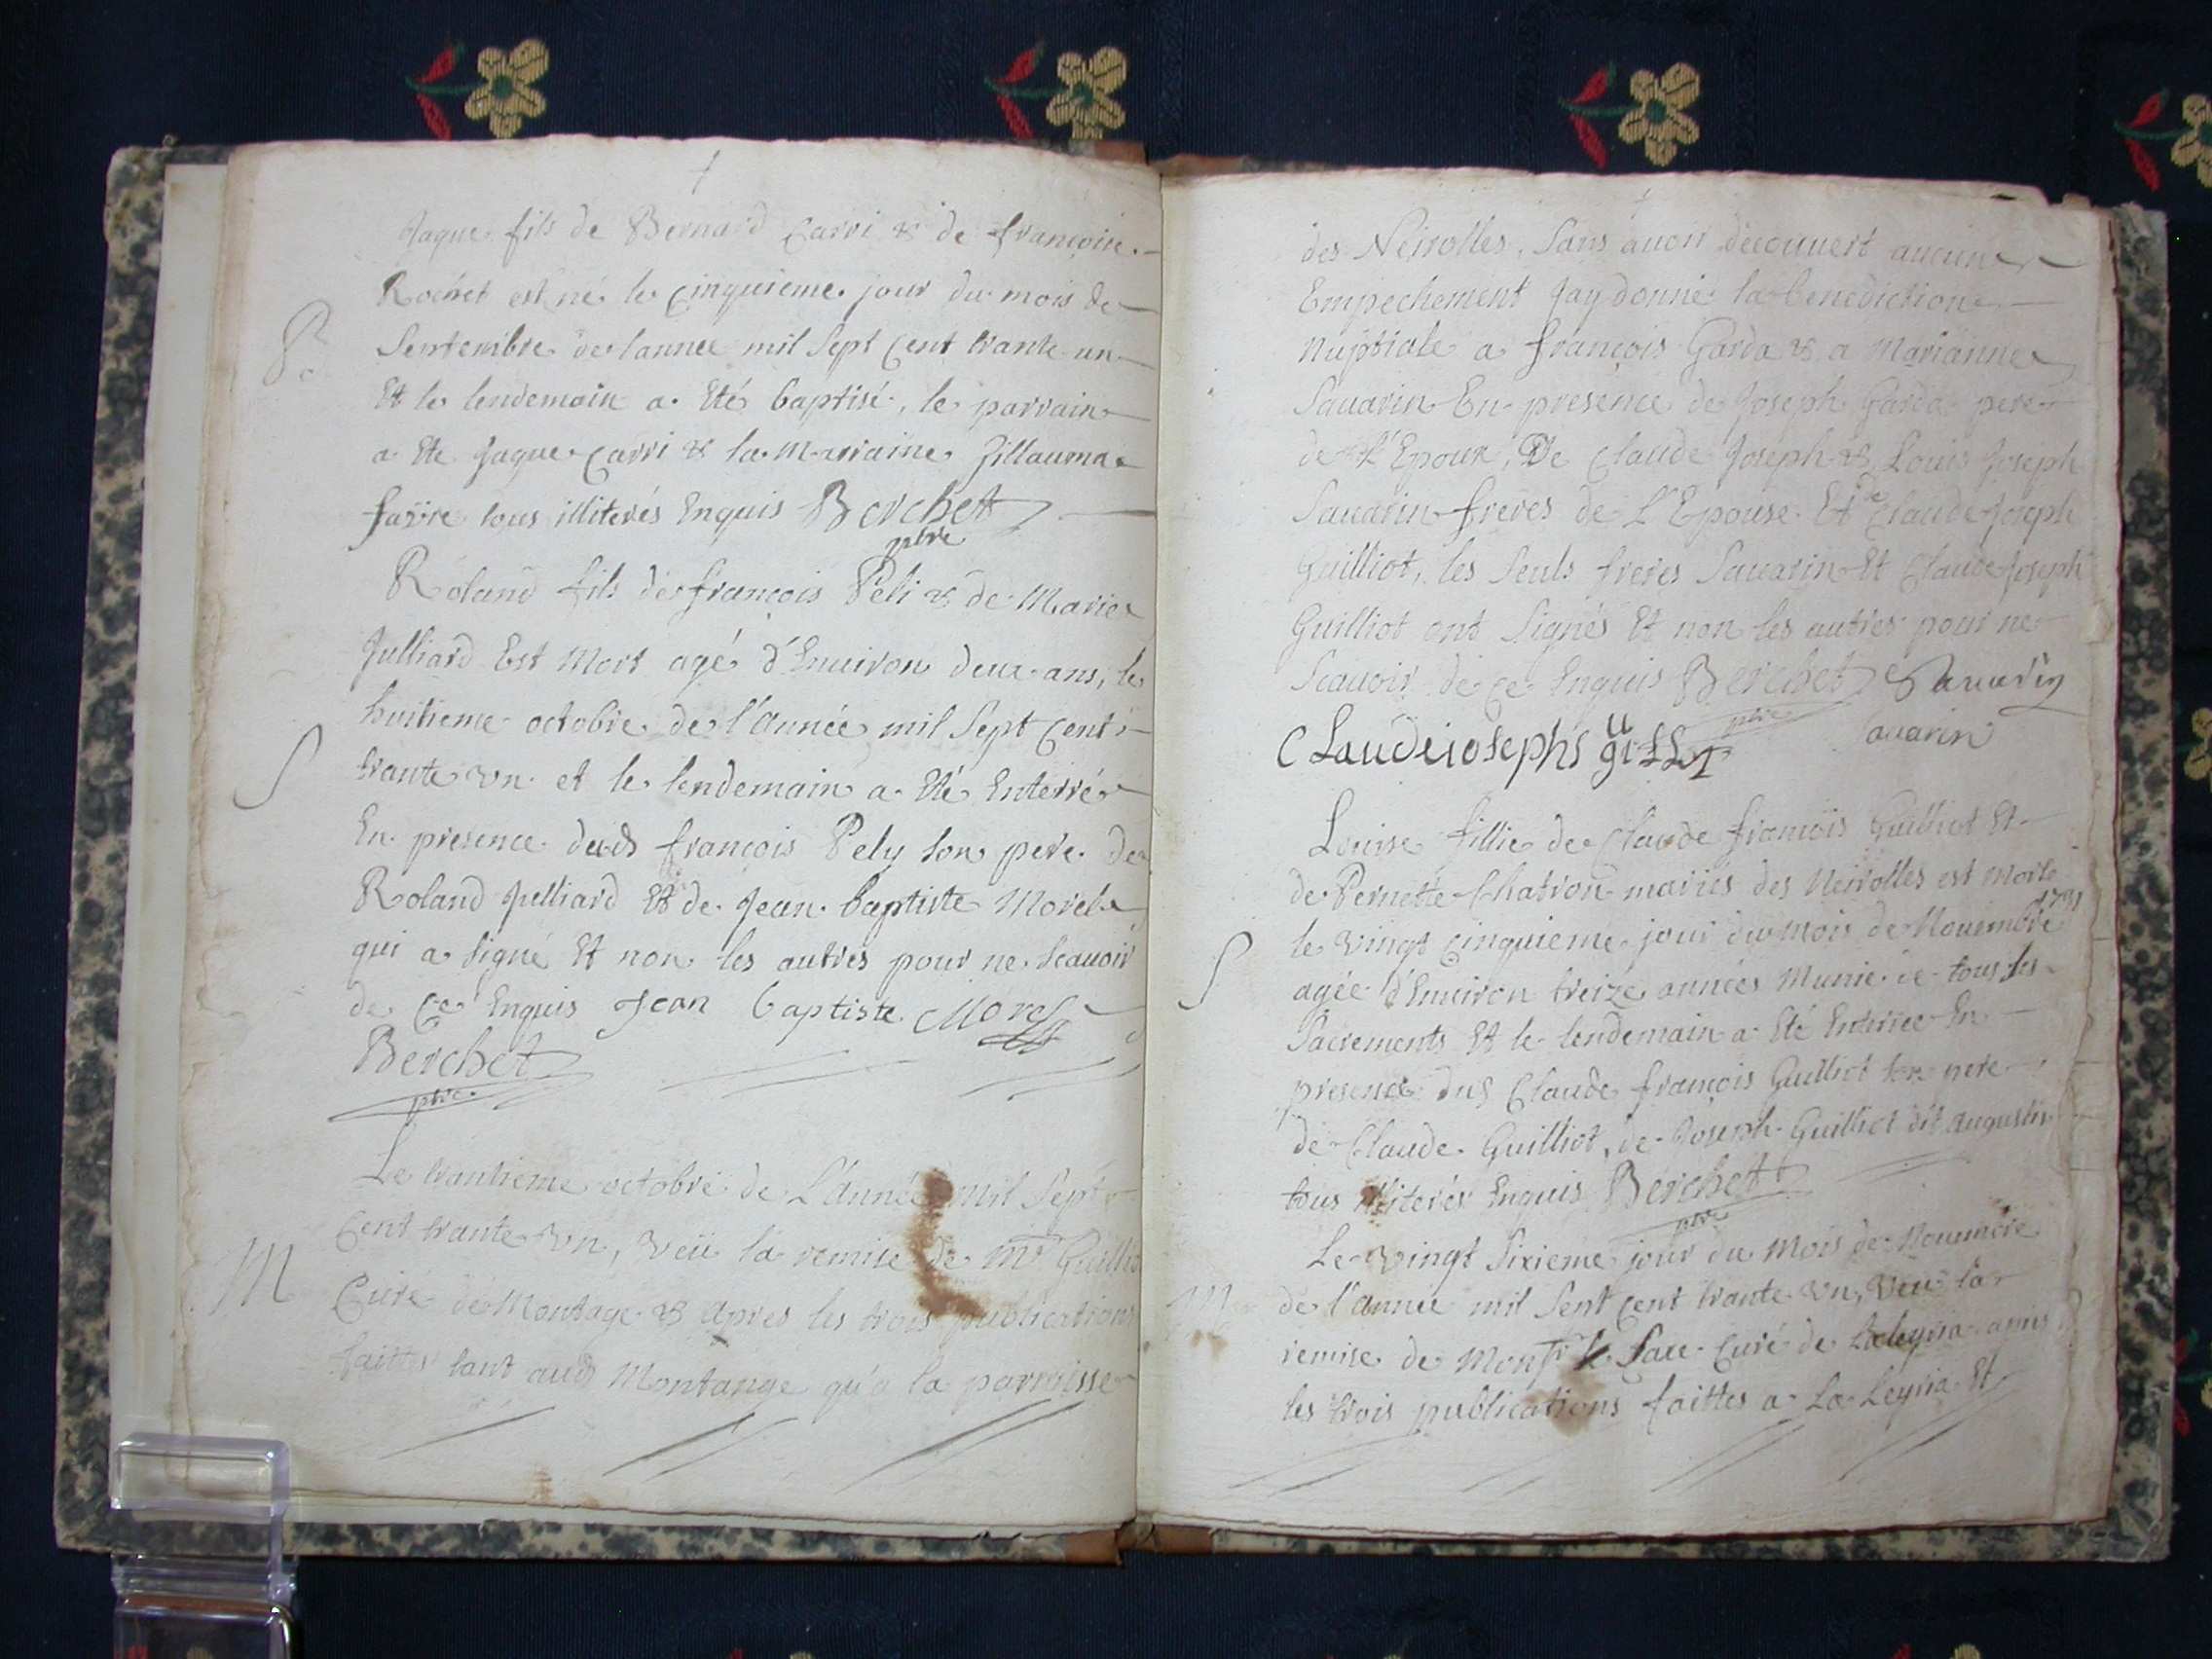 Jaque fils de Bernard Carri & de françoise
Rochet est né le cinquieme jour du mois de
B
Septembre de lannee mil Sept Cent trante un
Et le lendemain a Eté baptisé, le parrain
a Ete Jaque Carri & la Marraine
favre tous illiterés Enquis Berchet
ptre
Roland fils de françois Peli & de Marie
Julliard Est Mort agé d'Enuiron deux ans, le
huitieme octobre de l'année mil Sept Cent
S
trante Vn et le lendemain a Eté Enterré
En presence dud françois Pely Son pere de
Roland Julliard Et de Jean baptiste Morel
qui a Signé Et non les autres pour ne Scauoir
de Ce Enquis Jean baptiste Morel
Berchet
ptre
Le trantieme octobre de L'Année Mil Sept
Cent trante Vn, Veü la remise de Mr Guillio
M
Curé de Montage & apres les trois publications
faittes tant aud Montange qu'a la parroisse
des Neirolles, Sans auoir découuert aucun
Empechement Jay donné la benediction
Nuptiale a françois Garda & a Marianne
Sauarin En presence de Joseph Garda pere
de L'Epoux, De Claude Joseph & Louis Joseph
Sauarin freres de L'Epouse Et de Claude Joseph
Guilliot, les Seuls freres Sauarin Et Claude Joseph
Guilliot ont Signés Et non les autres pour ne
Scauoir de ce Enquis Berchet Sauarin
ptre
auarin
CLaudeiosephs
Louise fillie de Claude françois Guilliot Et
de Pernette Chatron mariés des Neirolles est Morte
1731
le Vingt Cinquieme jour du Mois de Nouembre
S
agée d'Enuiron treize années Munie de tous les
Sacrements Et le lendemain a Eté Enterrée En
presence dud Claude françois Guilliot Son pere
de Claude Guilliot, de Joseph Guilliot dit augustin
tous illiterés Enquis Berchet
ptre
Le Vingt Sixieme jour du Mois de Nouembre
M
de l'année mil Sept Cent trante Vn, Veu la
remise de Monsr Curé de Laleyria apres
les trois publications faittes a La Leyria Et